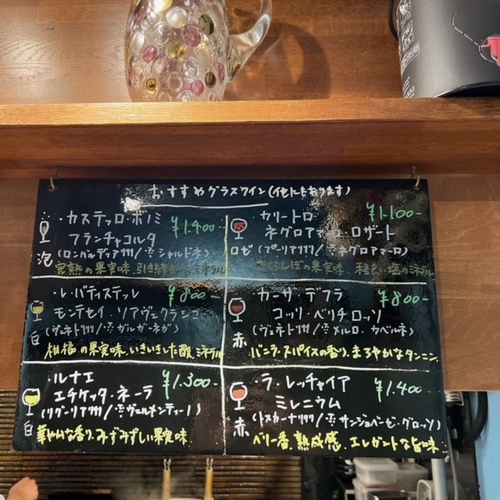 おすすめグラスワイン(他にもあります)
・カステッロ・ボノミ
フランチャコルタ
¥1.400-
泡
(ロンバルディア州/※シャルドネ)
完熟の果実味、引き締まったミネラル
・カリートロ
ネグロアマーロ・ロザート
¥1.100-
ロゼ
(プーリア州/※ネグロアマーロ)
さくらんぼの果実味
・レ・バティステッレ
¥800-
モンテセイ・ソアヴェクラシコ
白
(ヴェネト州/※ガルガーネガ)
柑橘の果実味、いきいきした酸、ミネラル
・カーサ・デフラ
¥800-
コッリ・ベリチロッソ
赤
(ヴェネト州/※メルロ、カベルネ)
バニラ、スパイスの香り、まろやかなタンニン。
・ルナエ
¥1.300-
エチケッタ・ネーラ
白
(リグーリア州/※ヴェルメンティーノ)
華やかな香り、みずみずしい果実味。
・ラ・レッチャイア
¥1.400
ミレニウム
赤
(トスカーナ州/※サンジョベーゼ・グロッソ)
ベリー香、熟成感、エレガントな旨味